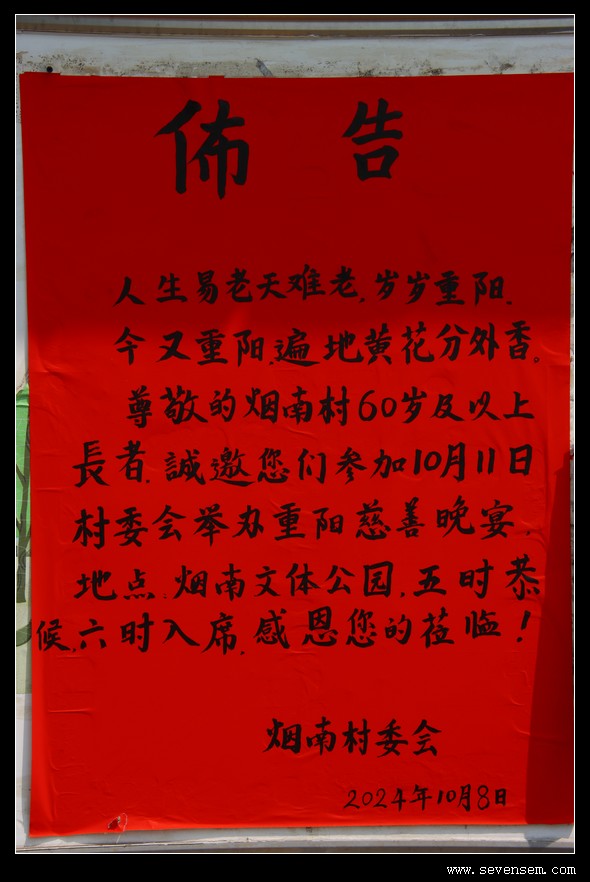 佈告
人生易老天难老,岁岁重阳,
今又重阳,遍地黄花分外香。
尊敬的烟南村60岁及以上
長者,誠邀您们参加10月11日
村委会举办重阳慈善晚宴,
地点,烟南文体公园,五时恭
候,六时入席,感恩您的莅临!
烟南村委会
2024年10月8日
www.sevensem.com